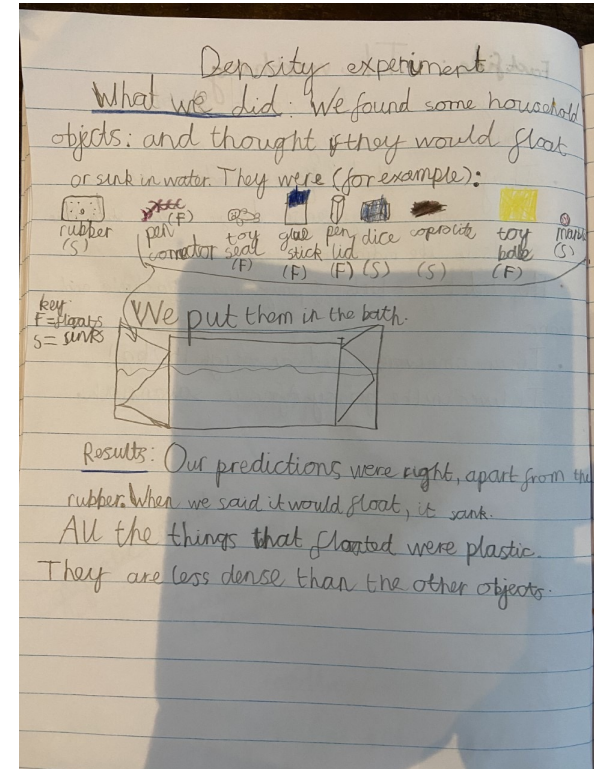 Density experiment
What we did: We found some household
objects: and thought if they would float
or sink in water. They were (for example):
rubber (S)
pen connector (F)
toy seal (F)
glue stick (F)
pen lid (F)
dice (S)
coprolite (S)
toy (F)
(S)
key:
F=floats
S= sinks
We put them in the bath.
Results: Our predictions were right, apart from the
rubber. When we said it would float, it sank.
All the things that floated were plastic.
They are less dense than the other objects.